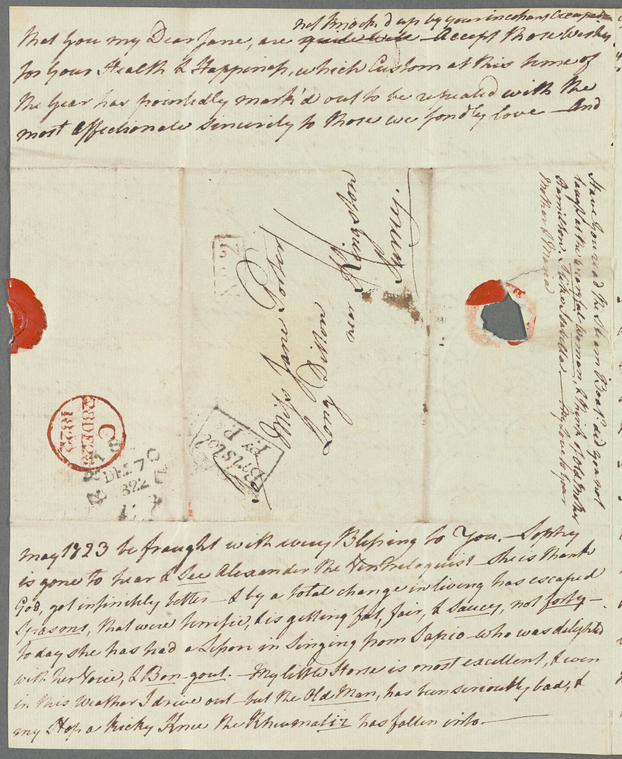 not knock'd up by your incessant
that You my Dear Jane, are quite well Accept those Wishes
for your Health & Happiness, which Custom at this time of
the Year has pointedly mark'd out to be repeated with the
most affectionate Sincerity to those we fondly love And
Miss Jane Porter
Long Ditton
near Kingston
Surry.
No. 2
C
28 DE 28
1822
BRISTOL
DE 27
822
Bristol
Py Pt
Have You read the Steam Boat, did you not
laugh at the
My Love to Your
Mother &
may 1823 be fraught with every Blessing to You. Sophy
is gone to hear & See Alexander the Ventriloquist she is thank
God, got infinitely better & by a total change in living has escaped
Spasms, that were terrific, & is getting fat, fair, & Saucy, not forty
today she has had a Lesson in Singing from Sapio who was delighted
with her Voice, & Bon gout. My little Horse is most excellent, & even
in this Weather I drive out but the Old Man, has been seriously bad, &
my Hop a Kicky Knee the Rheumatiz has fallen into